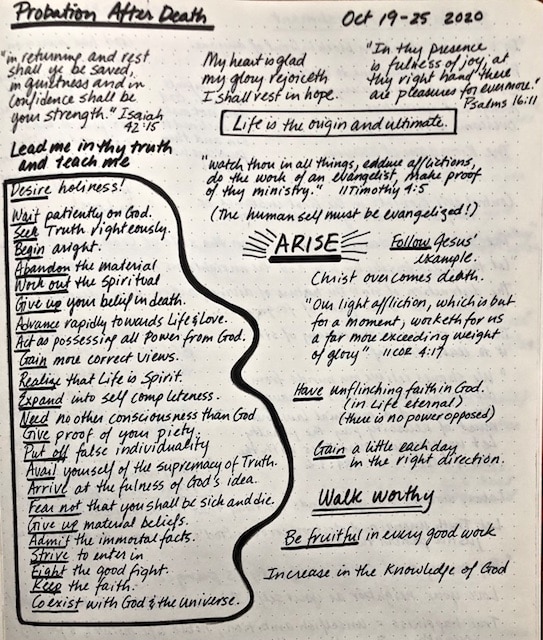 Probation After Death
Oct 19-25 2020
"in returning and rest
shall ye be saved,
in quietness and in
confidence shall be
your strength." Isaiah
42:15
My heart is glad
my glory rejoiceth
I shall rest in hope.
"In thy presence
is fulness of joy, at
thy right hand there
are pleasures for evermore."
Psalms 16:11
Life is the origin and ultimate.
Lead me in thy truth
and teach me
"watch thou in all things, endure afflictions,
do the work of an evangelist, make proof
of thy ministry." II Timothy 4:5
(The human self must be evangelized!)
Desire holiness!
Wait patiently on God.
Seek Truth righteously.
Begin aright.
Abandon the material
Work out the spiritual
Give up your belief in death.
Advance rapidly towards Life & Love.
Act as possessing all Power from God.
Gain more correct views.
Realize that Life is Spirit.
Expand into self completeness.
Need no other consciousness than God
Give proof of your piety.
Put off false individuality
Avail yourself of the supremacy of Truth.
Arrive at the fulness of God's idea.
Fear not that you shall be sick and die.
Give up material beliefs.
Admit the immortal facts.
Strive to enter in
Fight the good fight.
Keep the faith.
Coexist with God & the Universe.
ARISE
Follow Jesus'
example.
Christ overcomes death.
"Our light affliction, which is but
for a moment, worketh for us
a far more exceeding weight
of glory" II COR 4:17
Have unflinching faith in God.
(in Life eternal)
(there is no power opposed)
Gain a little each day
in the right direction.
Walk worthy
Be fruitful in every good work
Increase in the Knowledge of God